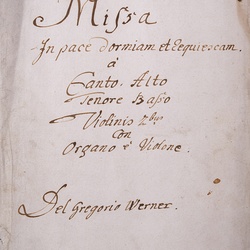 Missa
In pace dormiam et requiescam.
à
Canto, Alto
Tenore Basso
Violinis 2bus
con
Organo è Violone.
Del Gregorio Werner.